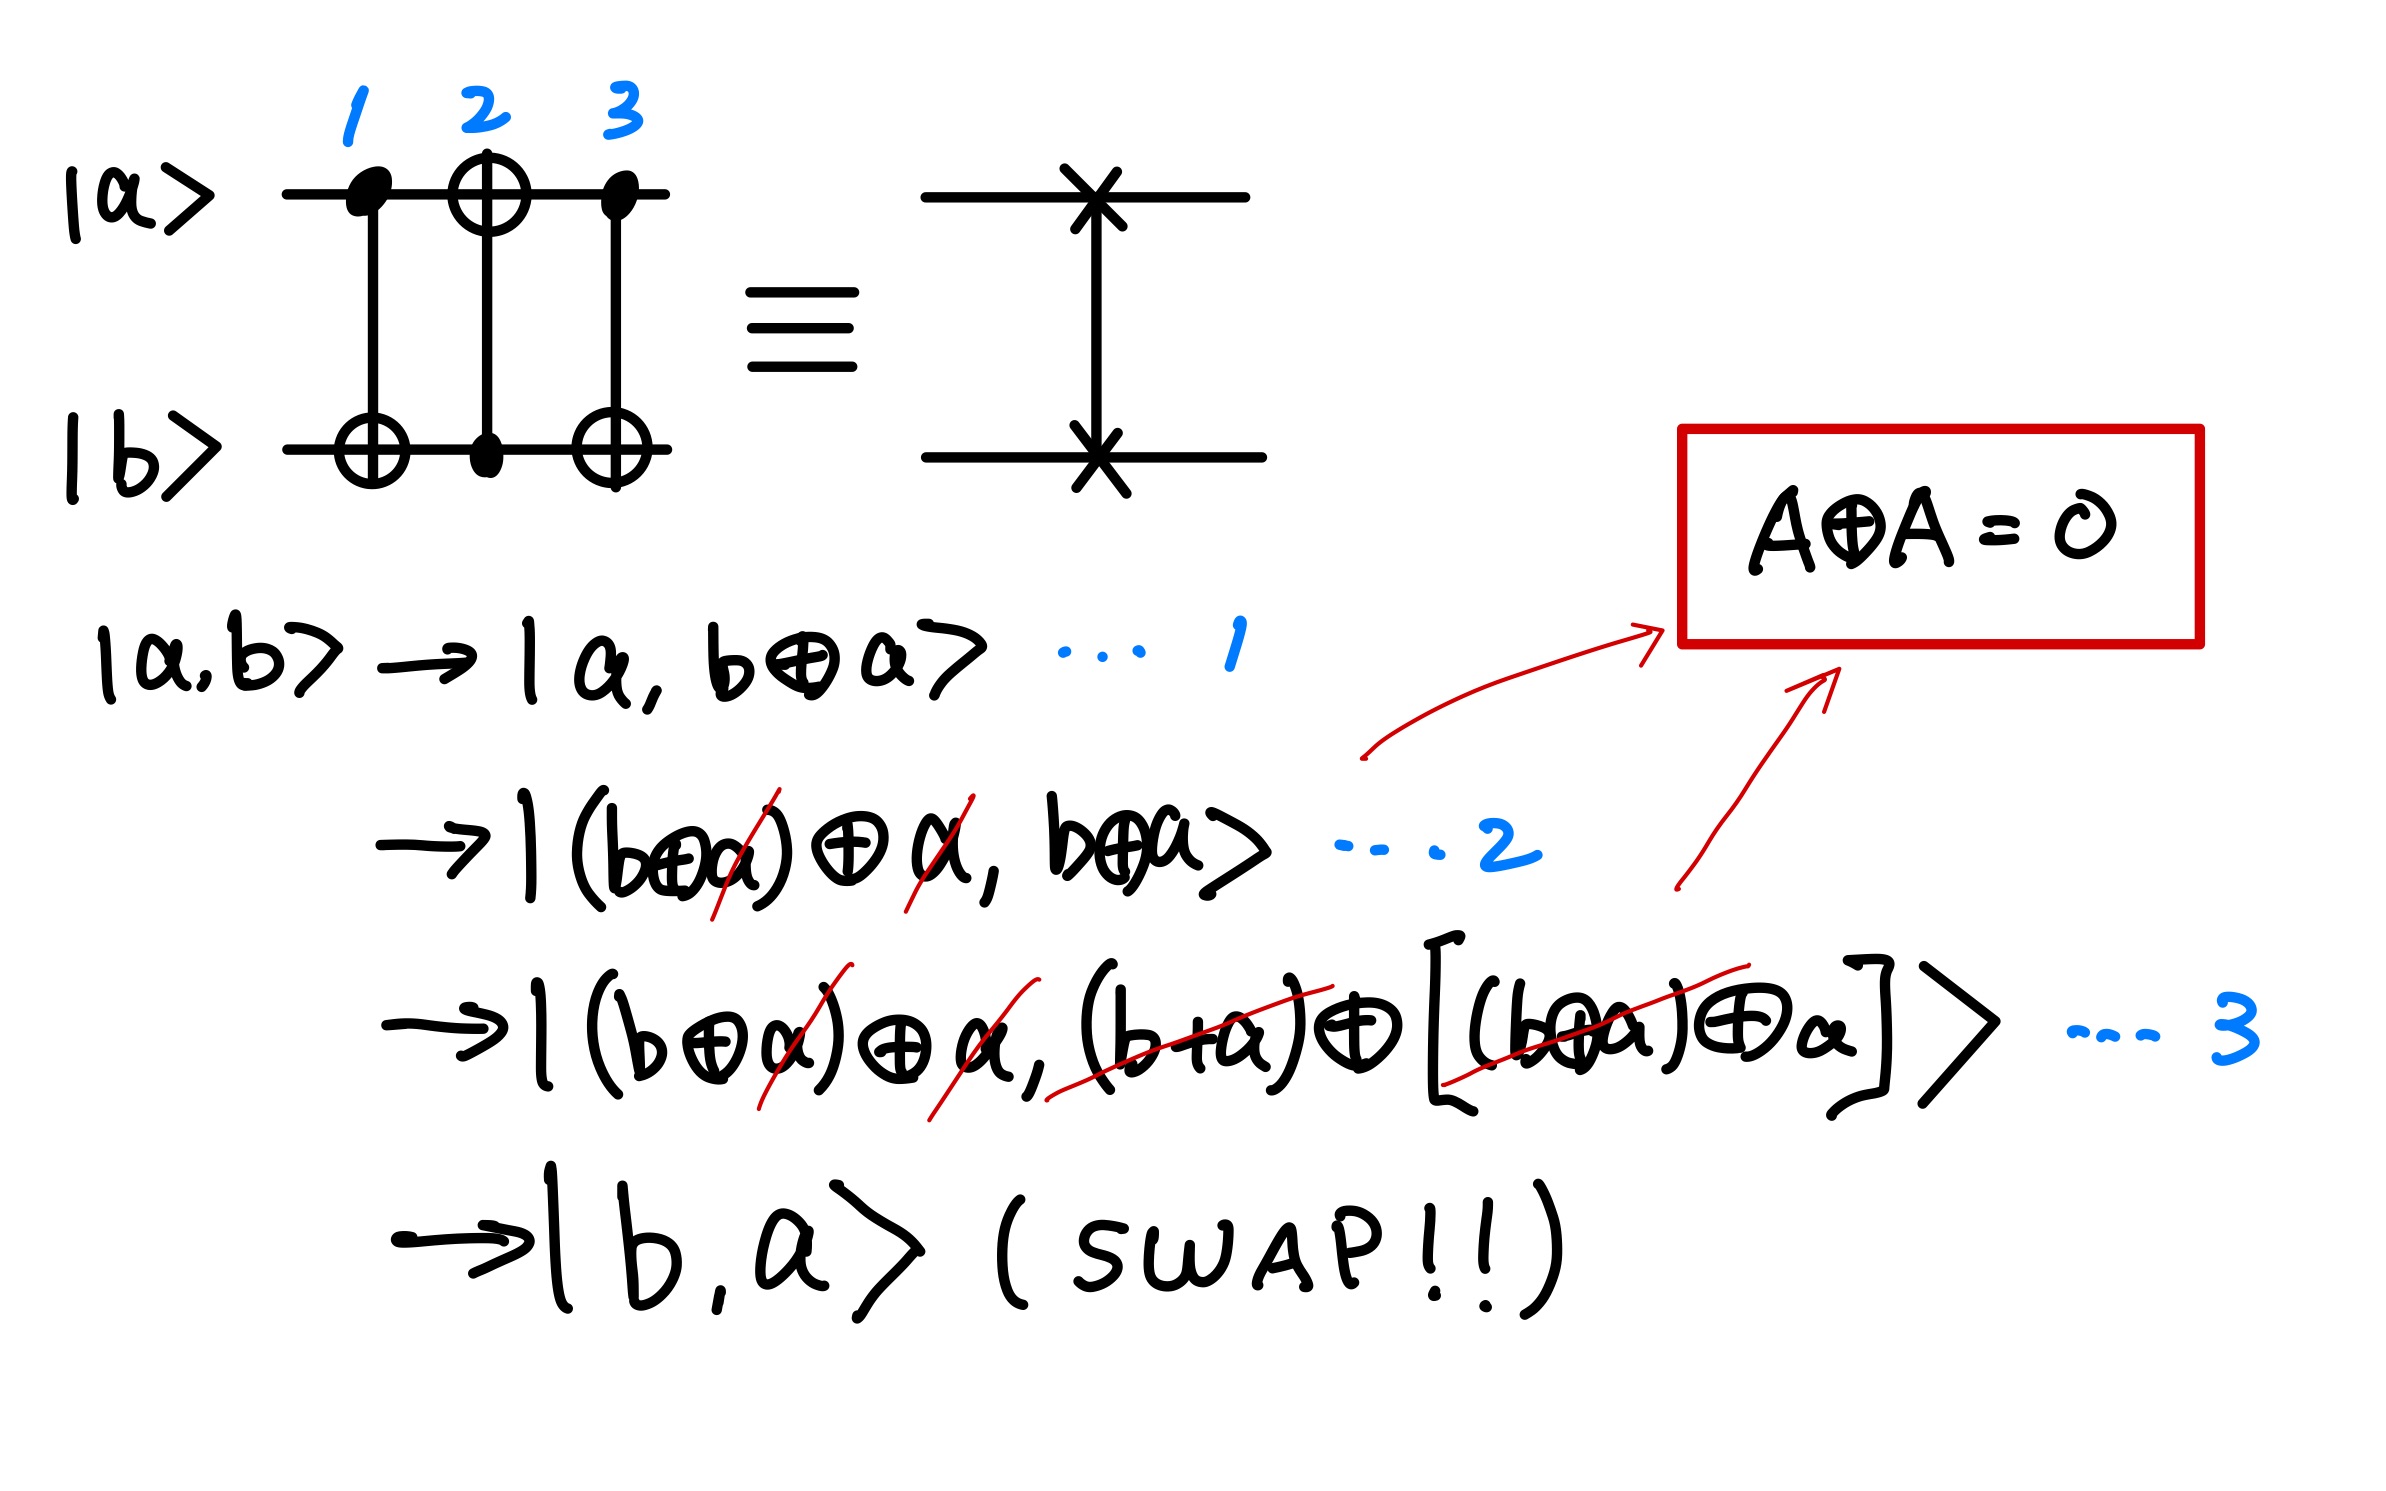 1 2 3
|a>
≡
|b>
A⊕A = 0
|a,b> → |a, b⊕a> ... 1
→ |(b⊕a) ⊕ a, b⊕a> ... 2
→ |(b⊕a) ⊕ a, (b+a) ⊕ [(b⊕a) ⊕ a]> ... 3
→ |b,a> (SWAP!!)